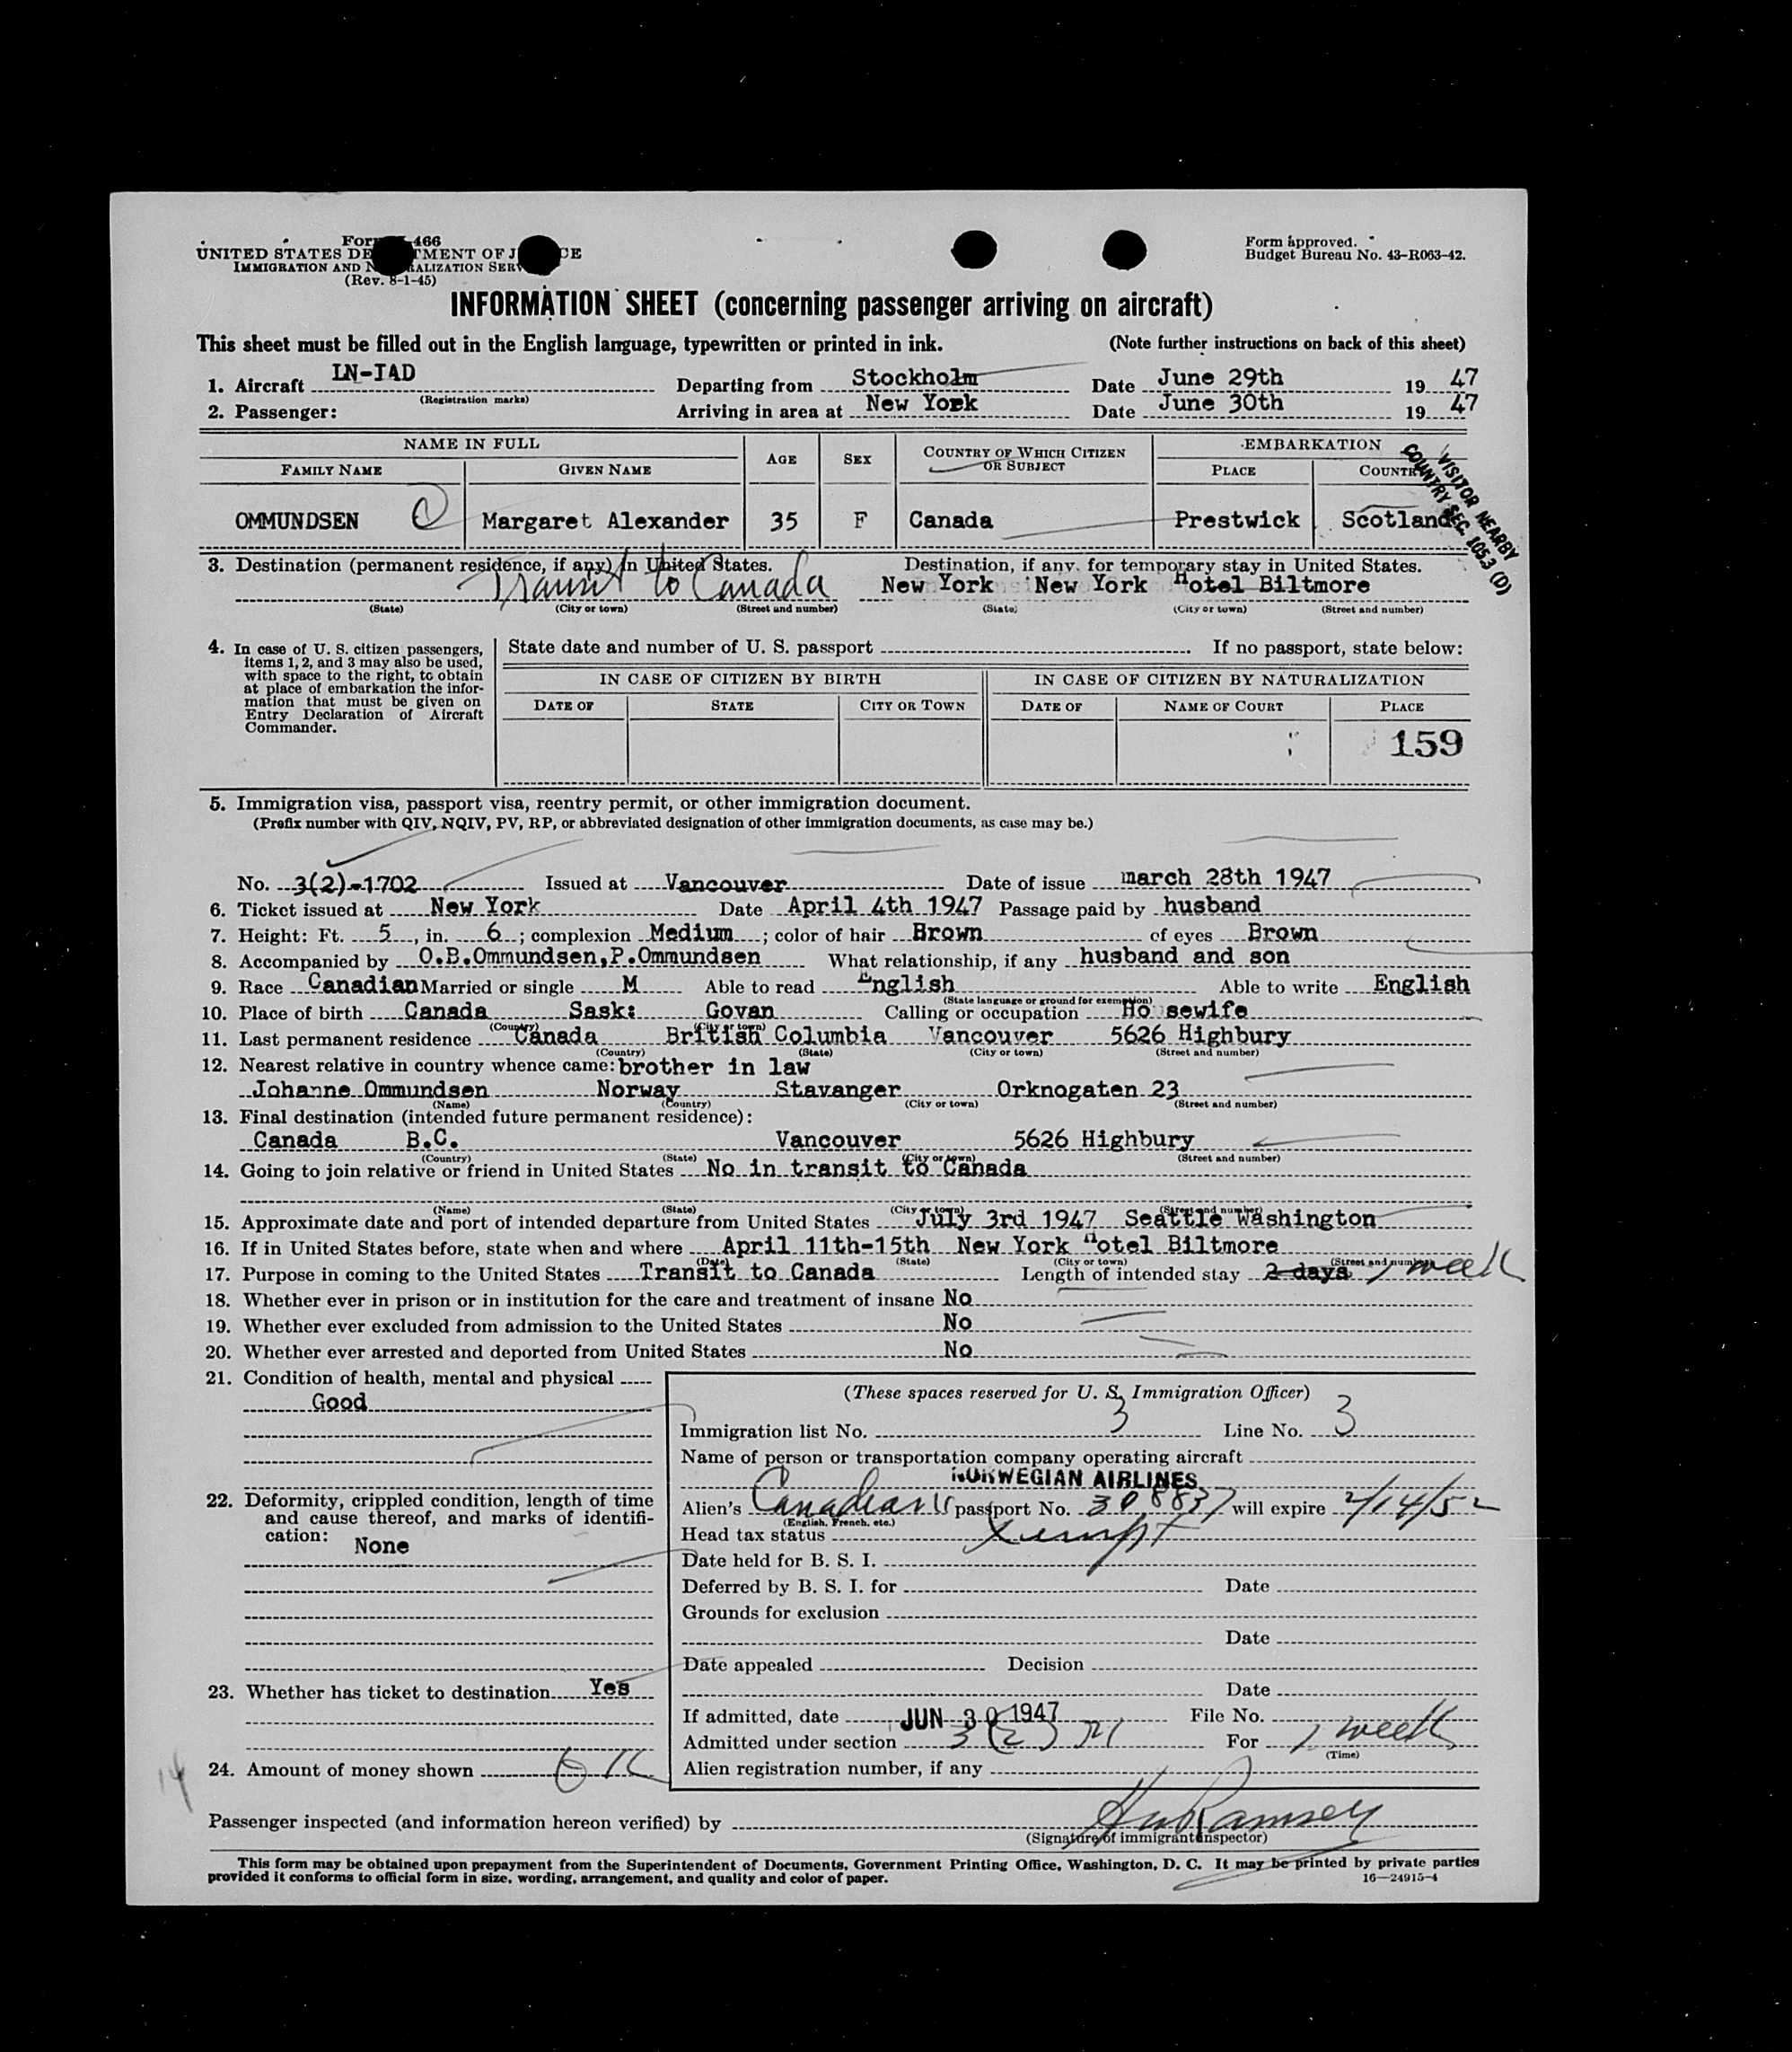 Form 466
UNITED STATES DE TMENT OF J CE
IMMIGRATION AND N RALIZATION SERV
(Rev. 8-1-45)
Form approved.
Budget Bureau No. 43-R063-42.
INFORMATION SHEET (concerning passenger arriving on aircraft)
This sheet must be filled out in the English language, typewritten or printed in ink. (Note further instructions on back of this sheet)
1. Aircraft LN-IAD Departing from Stockholm Date June 29th 19 47
(Registration marks)
2. Passenger: Arriving in area at New York Date June 30th 19 47
NAME IN FULL AGE SEX COUNTRY OF WHICH CITIZEN OR SUBJECT EMBARKATION
FAMILY NAME GIVEN NAME PLACE COUNTRY
VISITOR NEARBY
COUNTRY SEC. 105.3 (D)
OMMUNDSEN Margaret Alexander 35 F Canada Prestwick Scotland
3. Destination (permanent residence, if any) in United States. Destination, if any, for temporary stay in United States.
Transit to Canada New York New York Hotel Biltmore
(State) (City or town) (Street and number) (State) (City or town) (Street and number)
4. In case of U. S. citizen passengers, items 1, 2, and 3 may also be used, with space to the right, to obtain at place of embarkation the information that must be given on Entry Declaration of Aircraft Commander.
State date and number of U. S. passport If no passport, state below:
IN CASE OF CITIZEN BY BIRTH IN CASE OF CITIZEN BY NATURALIZATION
DATE OF STATE CITY OR TOWN DATE OF NAME OF COURT PLACE
159
5. Immigration visa, passport visa, reentry permit, or other immigration document.
(Prefix number with QIV, NQIV, PV, RP, or abbreviated designation of other immigration documents, as case may be.)
No. 3(2)-1702 Issued at Vancouver Date of issue march 28th 1947
6. Ticket issued at New York Date April 4th 1947 Passage paid by husband
7. Height: Ft. 5, in. 6; complexion Medium; color of hair Brown of eyes Brown
8. Accompanied by O.B.Ommundsen,P.Ommundsen What relationship, if any husband and son
9. Race Canadian Married or single M Able to read English Able to write English
(State language or ground for exemption)
10. Place of birth Canada Sask: Govan Calling or occupation Ho sewife
(Country) (City or town)
11. Last permanent residence Canada British Columbia Vancouver 5626 Highbury
(Country) (State) (City or town) (Street and number)
12. Nearest relative in country whence came: brother in law
Johanne Ommundsen Norway Stavanger Orknogaten 23
(Name) (Country) (City or town) (Street and number)
13. Final destination (intended future permanent residence):
Canada B.C. Vancouver 5626 Highbury
(Country) (State) (City or town) (Street and number)
14. Going to join relative or friend in United States No in transit to Canada
(Name) (State) (City or town) (Street and number)
15. Approximate date and port of intended departure from United States July 3rd 1947 Seattle Washington
16. If in United States before, state when and where April 11th-15th New York Hotel Biltmore
(Date) (State) (City or town) (Street and number)
17. Purpose in coming to the United States Transit to Canada Length of intended stay 2 days 1 week
18. Whether ever in prison or in institution for the care and treatment of insane No
19. Whether ever excluded from admission to the United States No
20. Whether ever arrested and deported from United States No
21. Condition of health, mental and physical
Good
22. Deformity, crippled condition, length of time and cause thereof, and marks of identification:
None
23. Whether has ticket to destination Yes
24. Amount of money shown
14
(These spaces reserved for U. S. Immigration Officer)
Immigration list No. 3 Line No. 3
Name of person or transportation company operating aircraft
NORWEGIAN AIRLINES
Alien's Canadian passport No. 308837 will expire 2/14/52
(English, French, etc.)
Head tax status Xempt
Date held for B. S. I.
Deferred by B. S. I. for Date
Grounds for exclusion
Date
Date appealed Decision
Date
If admitted, date JUN 30 1947 File No.
Admitted under section 3 (2) For 1 week
(Time)
Alien registration number, if any
Passenger inspected (and information hereon verified) by Ramsey
(Signature of immigrant inspector)
This form may be obtained upon prepayment from the Superintendent of Documents, Government Printing Office, Washington, D. C. It may be printed by private parties
provided it conforms to official form in size, wording, arrangement, and quality and color of paper. 16—24915-4